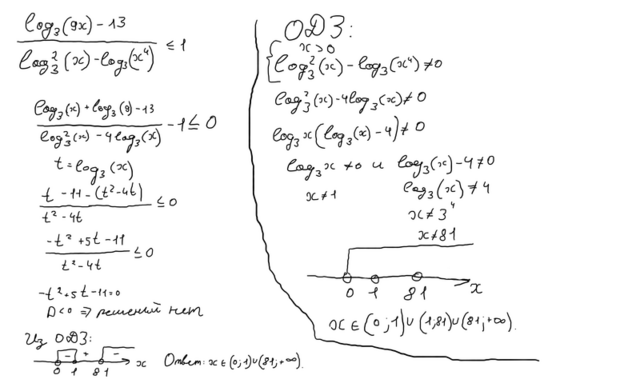 log₃(9x) − 13 / log₃²(x) − log₃(x⁴) ≤ 1
log₃(x) + log₃(9) − 13 / log₃²(x) − 4log₃(x) − 1 ≤ 0
t = log₃(x)
t − 11 − (t² − 4t) / t² − 4t ≤ 0
−t² + 5t − 11 / t² − 4t ≤ 0
−t² + 5t − 11 = 0
D<0 ⇒ решений нет
Из ОДЗ:
− + −
0 1 81 x
Ответ: x ∈ (0; 1) ∪ (81; +∞).
ОДЗ:
x > 0
log₃²(x) − log₃(x⁴) ≠ 0
log₃²(x) − 4log₃(x) ≠ 0
log₃x(log₃(x) − 4) ≠ 0
log₃x ≠ 0 и log₃(x) − 4 ≠ 0
x ≠ 1 log₃(x) ≠ 4
x ≠ 3⁴
x ≠ 81
0 1 81 x
x ∈ (0; 1) ∪ (1; 81) ∪ (81; +∞).